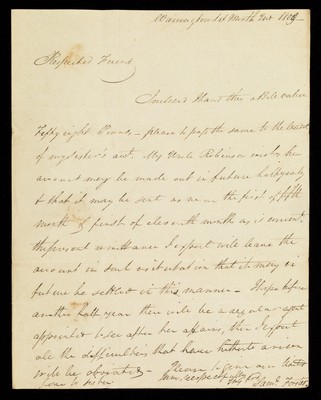 Respected Friend
Inclosed I hand thee a Bill value
Fifty eight Pounds – please to pass the same to the credit
of my Sister's acct. My Uncle Robinson wishes her
account may be made out in future half yearly
& that it may be sent as near the first of fifth
month & first of eleventh month as is convent.
the present remittance I expect will leave the
account in such a situation that it may in
future be settled in this manner – I hope before
another half year there will be a regular agent
appointed to see after her affairs, then I expect
all the difficulties that have hitherto arisen
will be obviated –
respectfully
Saml. Forster